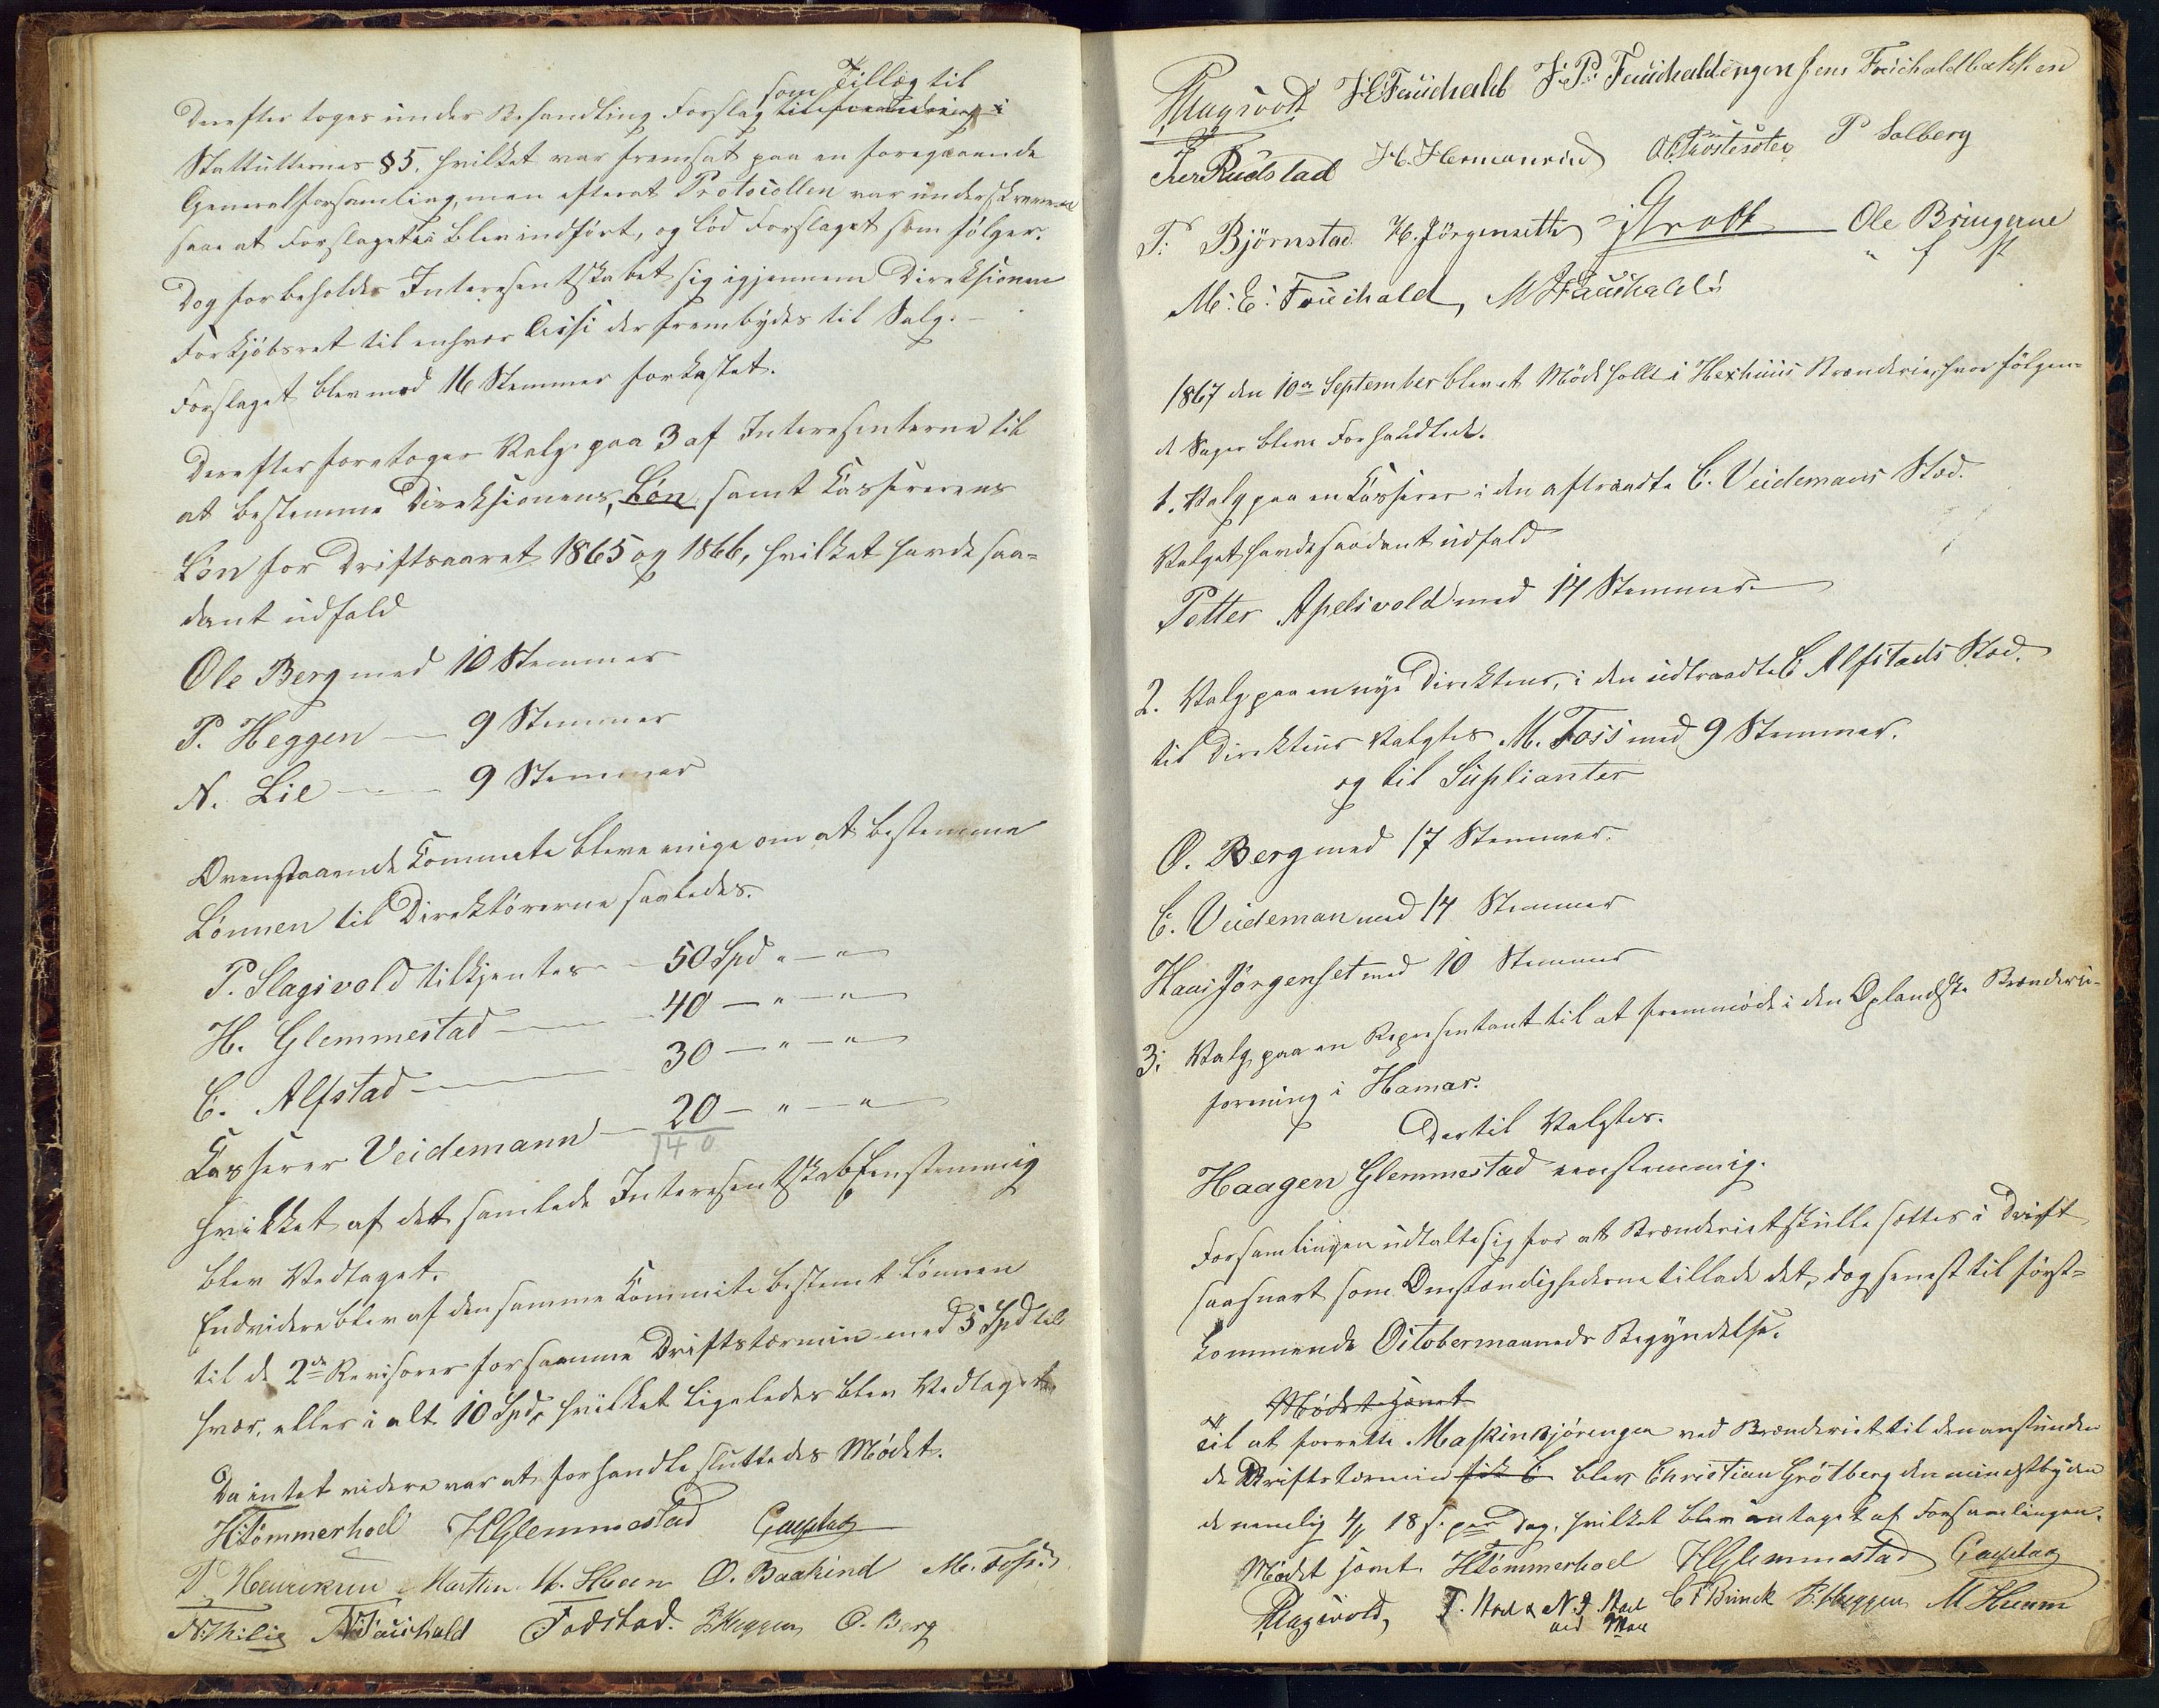 som Tillæg til
Derefter toges under Behandling Forslag til forandring i
Stattutternes § 5, hvilket var fremsat paa en foregaaende
Generalforsamling, men efterat Protocollen var underskreven
saa at Forslaget ei blev indført, og lød Forslaget som følger.
Dog forbeholder Interesentskabet sig igjennem Direksionen
Forkjöbsret til enhver Acsi der frembydes til Salg. –
Forslaget blev med 16 Stemmer forkastet.
Derefter foretoges Valg paa 3 af Interesenterne til
at bestemme Direksionens, Løn, samt Kassererens
Løn for Driftsaaret 1865 og 1866, hvilket havde saa=
dant udfald
Ole Berg med 10 Stemmer
P. Heggen — 9 Stemmer
N. Lie — 9 Stemmer
Ovenstaaende Kommete bleve enige om at bestemme
Lønnen til Direktörerne saaledes.
P. Slagsvold tilkjentes – 50 Spd „ – „
H. Glemmestad — 40 – „ – „
C. Alfstad — 30 – „ – „
Kasserer Veidemann — 20 – „ – „
140
hvikket af det samlede Interesentskab Eenstemmig
blev Vedtaget.
Endvidere blev af den samme Kommite bestemt Lønnen
til de 2de Revisorer for samme Driftstermin med 5 Spd til
hver, eller i alt 10 Spd, hvilket ligeledes blev Vedtaget
Da intet videre var at forhandle sluttedes Mødet.
H Tömmerhoel HGlemmestad
P Henriksen Martin M. Skeen O. Baakind M. Foss
N Thilie N Fauchald Fodstad. P. Heggen O. Berg
P Slagsvold J. E Fauchald J. P. Fauchaldengen Jens Fauchaldbakken
Iver Rudstad H. Hermanrud P Solberg
P. Björnstad H. Jörgensette Ole Bringerne
M. E. Fauchald, M Fauchald
1867 den 10de September blev et Möde holdt i Hexhuus Brænderie, hvor fölgen=
de Sager bleve Forhandlede.
1. Valg paa en Kasserer i den aftraadte C. Veidemans Stæd.
Valget havde saadant udfald
Petter Apelsvold med 14 Stemmer
2. Valg paa en nye Direkteur, i den udtraadte C Alfstads Stæd.
til Direkteur Valgtes M. Foss med 9 Stemmer.
og til Suplianter
O. Berg med 17 Stemmer.
C. Veideman med 14 Stemmer
Hans Jörgenset med 10 Stemmer
3. Valg paa en Repersentant til at fremmöde i den Oplandske Brænderie-
forening i Hamar.
Dertil Valgtes.
Haagen Glemmestad eenstemmig.
Forsamlingen udtalte sig for at Brænderiet skulle sættes i Drift
saasnart som Omstændighederne tillade det, dog senest til först=
kommende Octobermaaneds Begyndelse.
Mödet hævet
Til at forrette Maskinkjöringen ved Brænderiet til den anstunden
de Driftstermin fik C blev Christian Grötberg den mindstbyden
de nemlig 18 s. per Dag, hvilket blev antaget af Forsamlingen.
Mödet hævet. H Tömmerhoel HGlemmestad
P Slagsvold, C F Brinck P. Heggen